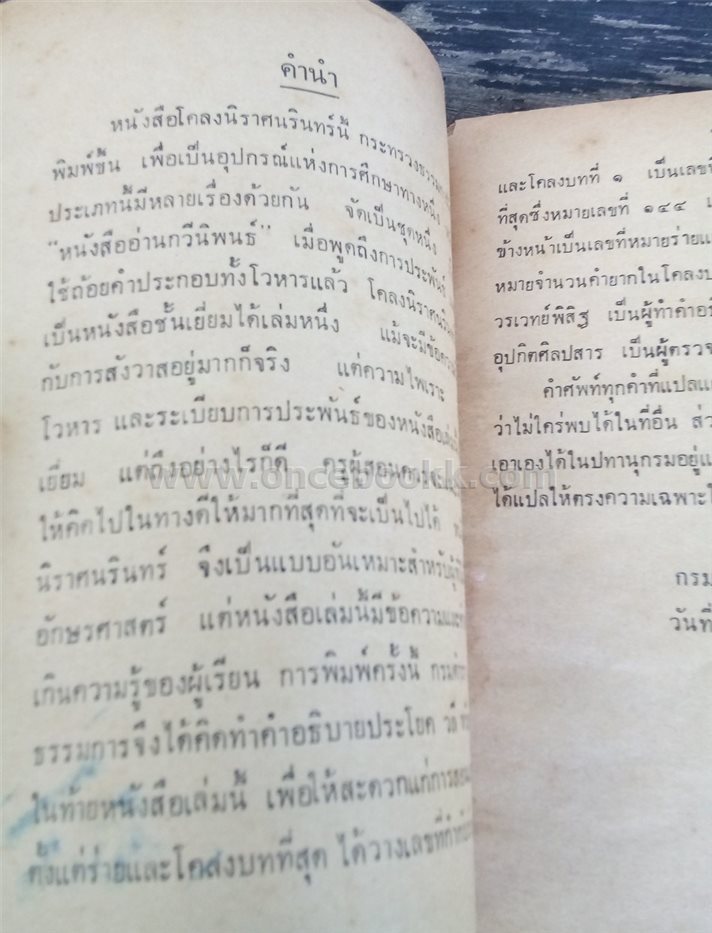 คำนำ
หนังสือโคลงนิราศนรินทร์นี้ กระทรวงธรรมการ
พิมพ์ขึ้น เพื่อเป็นอุปกรณ์แห่งการศึกษาทางหนึ่ง
ประเภทนี้มีหลายเรื่องด้วยกัน จัดเป็นชุดหนึ่ง
“หนังสืออ่านกวีนิพนธ์” เมื่อพูดถึงการประพันธ์
ใช้ถ้อยคำประกอบทั้งโวหารแล้ว โคลงนิราศนรินทร์
เป็นหนังสือชั้นเยี่ยมได้เล่มหนึ่ง แม้จะมีข้อความ
กับการสังวาสอยู่มากก็จริง แต่ความไพเราะ
โวหาร และระเบียบการประพันธ์ของหนังสือ
เยี่ยม แต่ถึงอย่างไรก็ดี ครูผู้สอน
ให้คิดไปในทางดีให้มากที่สุดที่จะเป็นไปได้
นิราศนรินทร์ จึงเป็นแบบอันเหมาะสำหรับ
อักษรศาสตร์ แต่หนังสือเล่มนี้มีข้อความ
เกินความรู้ของผู้เรียน การพิมพ์ครั้งนี้
ธรรมการจึงได้คิดทำคำอธิบายประโยค วลี
ในท้ายหนังสือเล่มนี้ เพื่อให้สะดวกแก่การสอน
ตั้งแต่ร่ายและโคลงบทที่สุด ได้วางเลขที่
และโคลงบทที่ ๑ เป็นเลขที่
ที่สุดซึ่งหมายเลขที่ ๑๔๔
ข้างหน้าเป็นเลขที่หมายร่าย
หมายจำนวนคำยากในโคลง
วรเวทย์พิสิฐ เป็นผู้ทำคำ
อุปกิตศิลปสาร เป็นผู้ตรวจ
คำศัพท์ทุกคำที่แปล
ว่าไม่ใคร่พบได้ในที่อื่น
เอาเองได้ในปทานุกรมอยู่
ได้แปลให้ตรงความเฉพาะ
กรม
วันที่
www.oncebookk.com